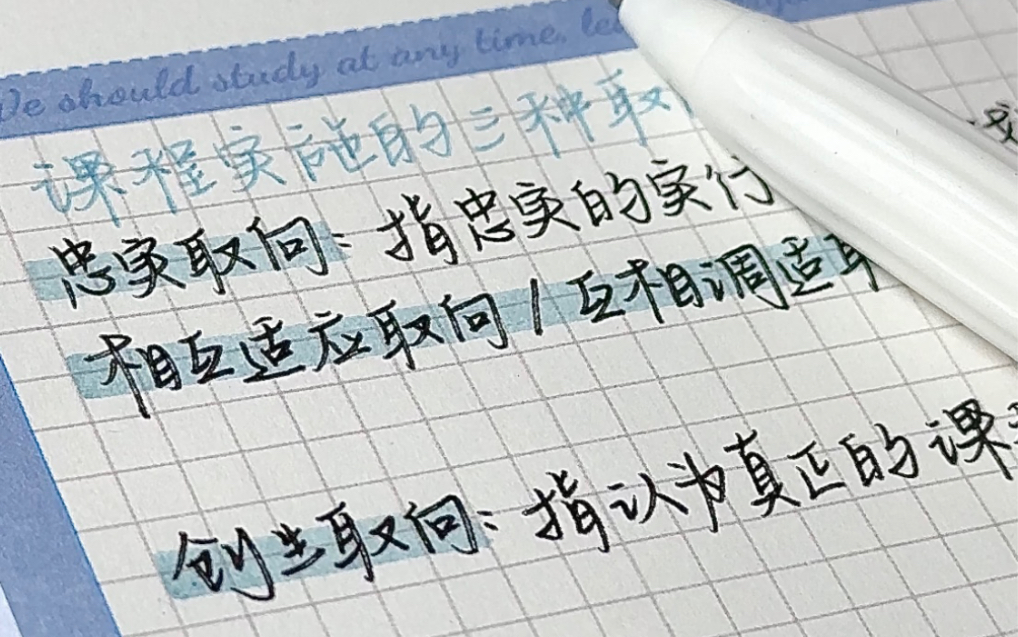 We should study at any time,
课程实施的三种取
忠实取向：指忠实的实行
相互适应取向/互相调适取
创生取向：指认为真正的课